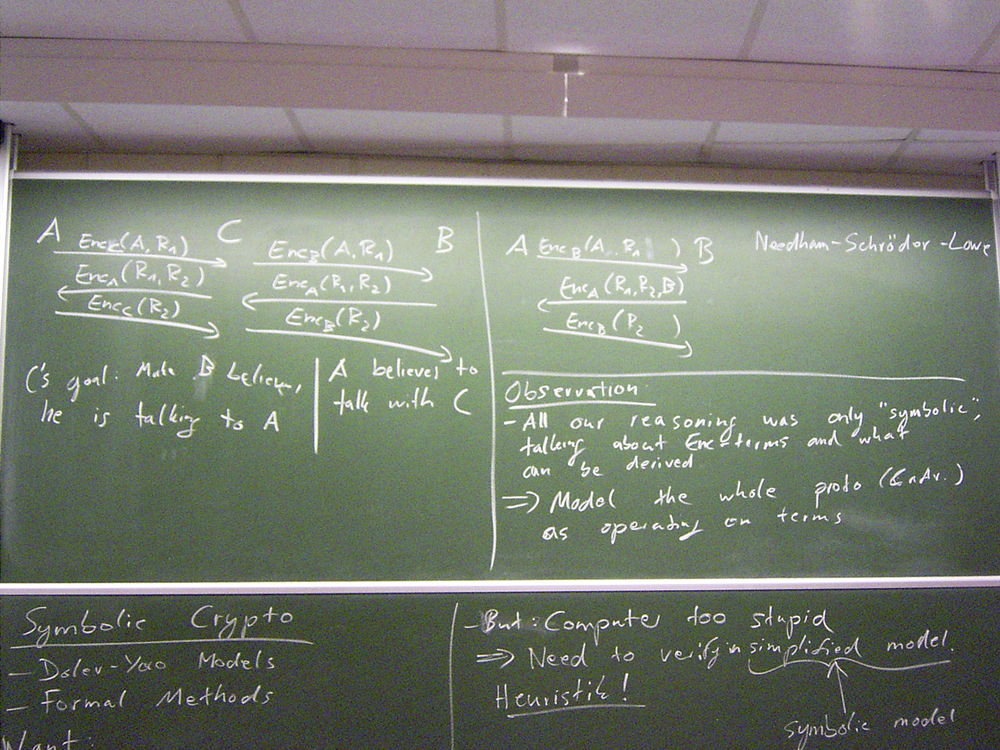 A C B
Enc_C(A, R₁) Enc_B(A, R₁)
Enc_A(R₁, R₂) Enc_A(R₁, R₂)
Enc_C(R₂) Enc_B(R₂)
C's goal: Make B believe,
he is talking to A
A believes to
talk with C
A Enc_B(A, R₁ ) B Needham-Schröder-Lowe
Enc_A(R₁, R₂, B)
Enc_B(R₂ )
Observation:
- All our reasoning was only "symbolic",
talking about Enc-terms and what
can be derived.
⇒ Model the whole proto (& Adv.)
as operating on terms
Symbolic Crypto
- Dolev-Yao Models
- Formal Methods
Want:
- But: Computer too stupid
⇒ Need to verify in simplified model.
Heuristik!
symbolic model